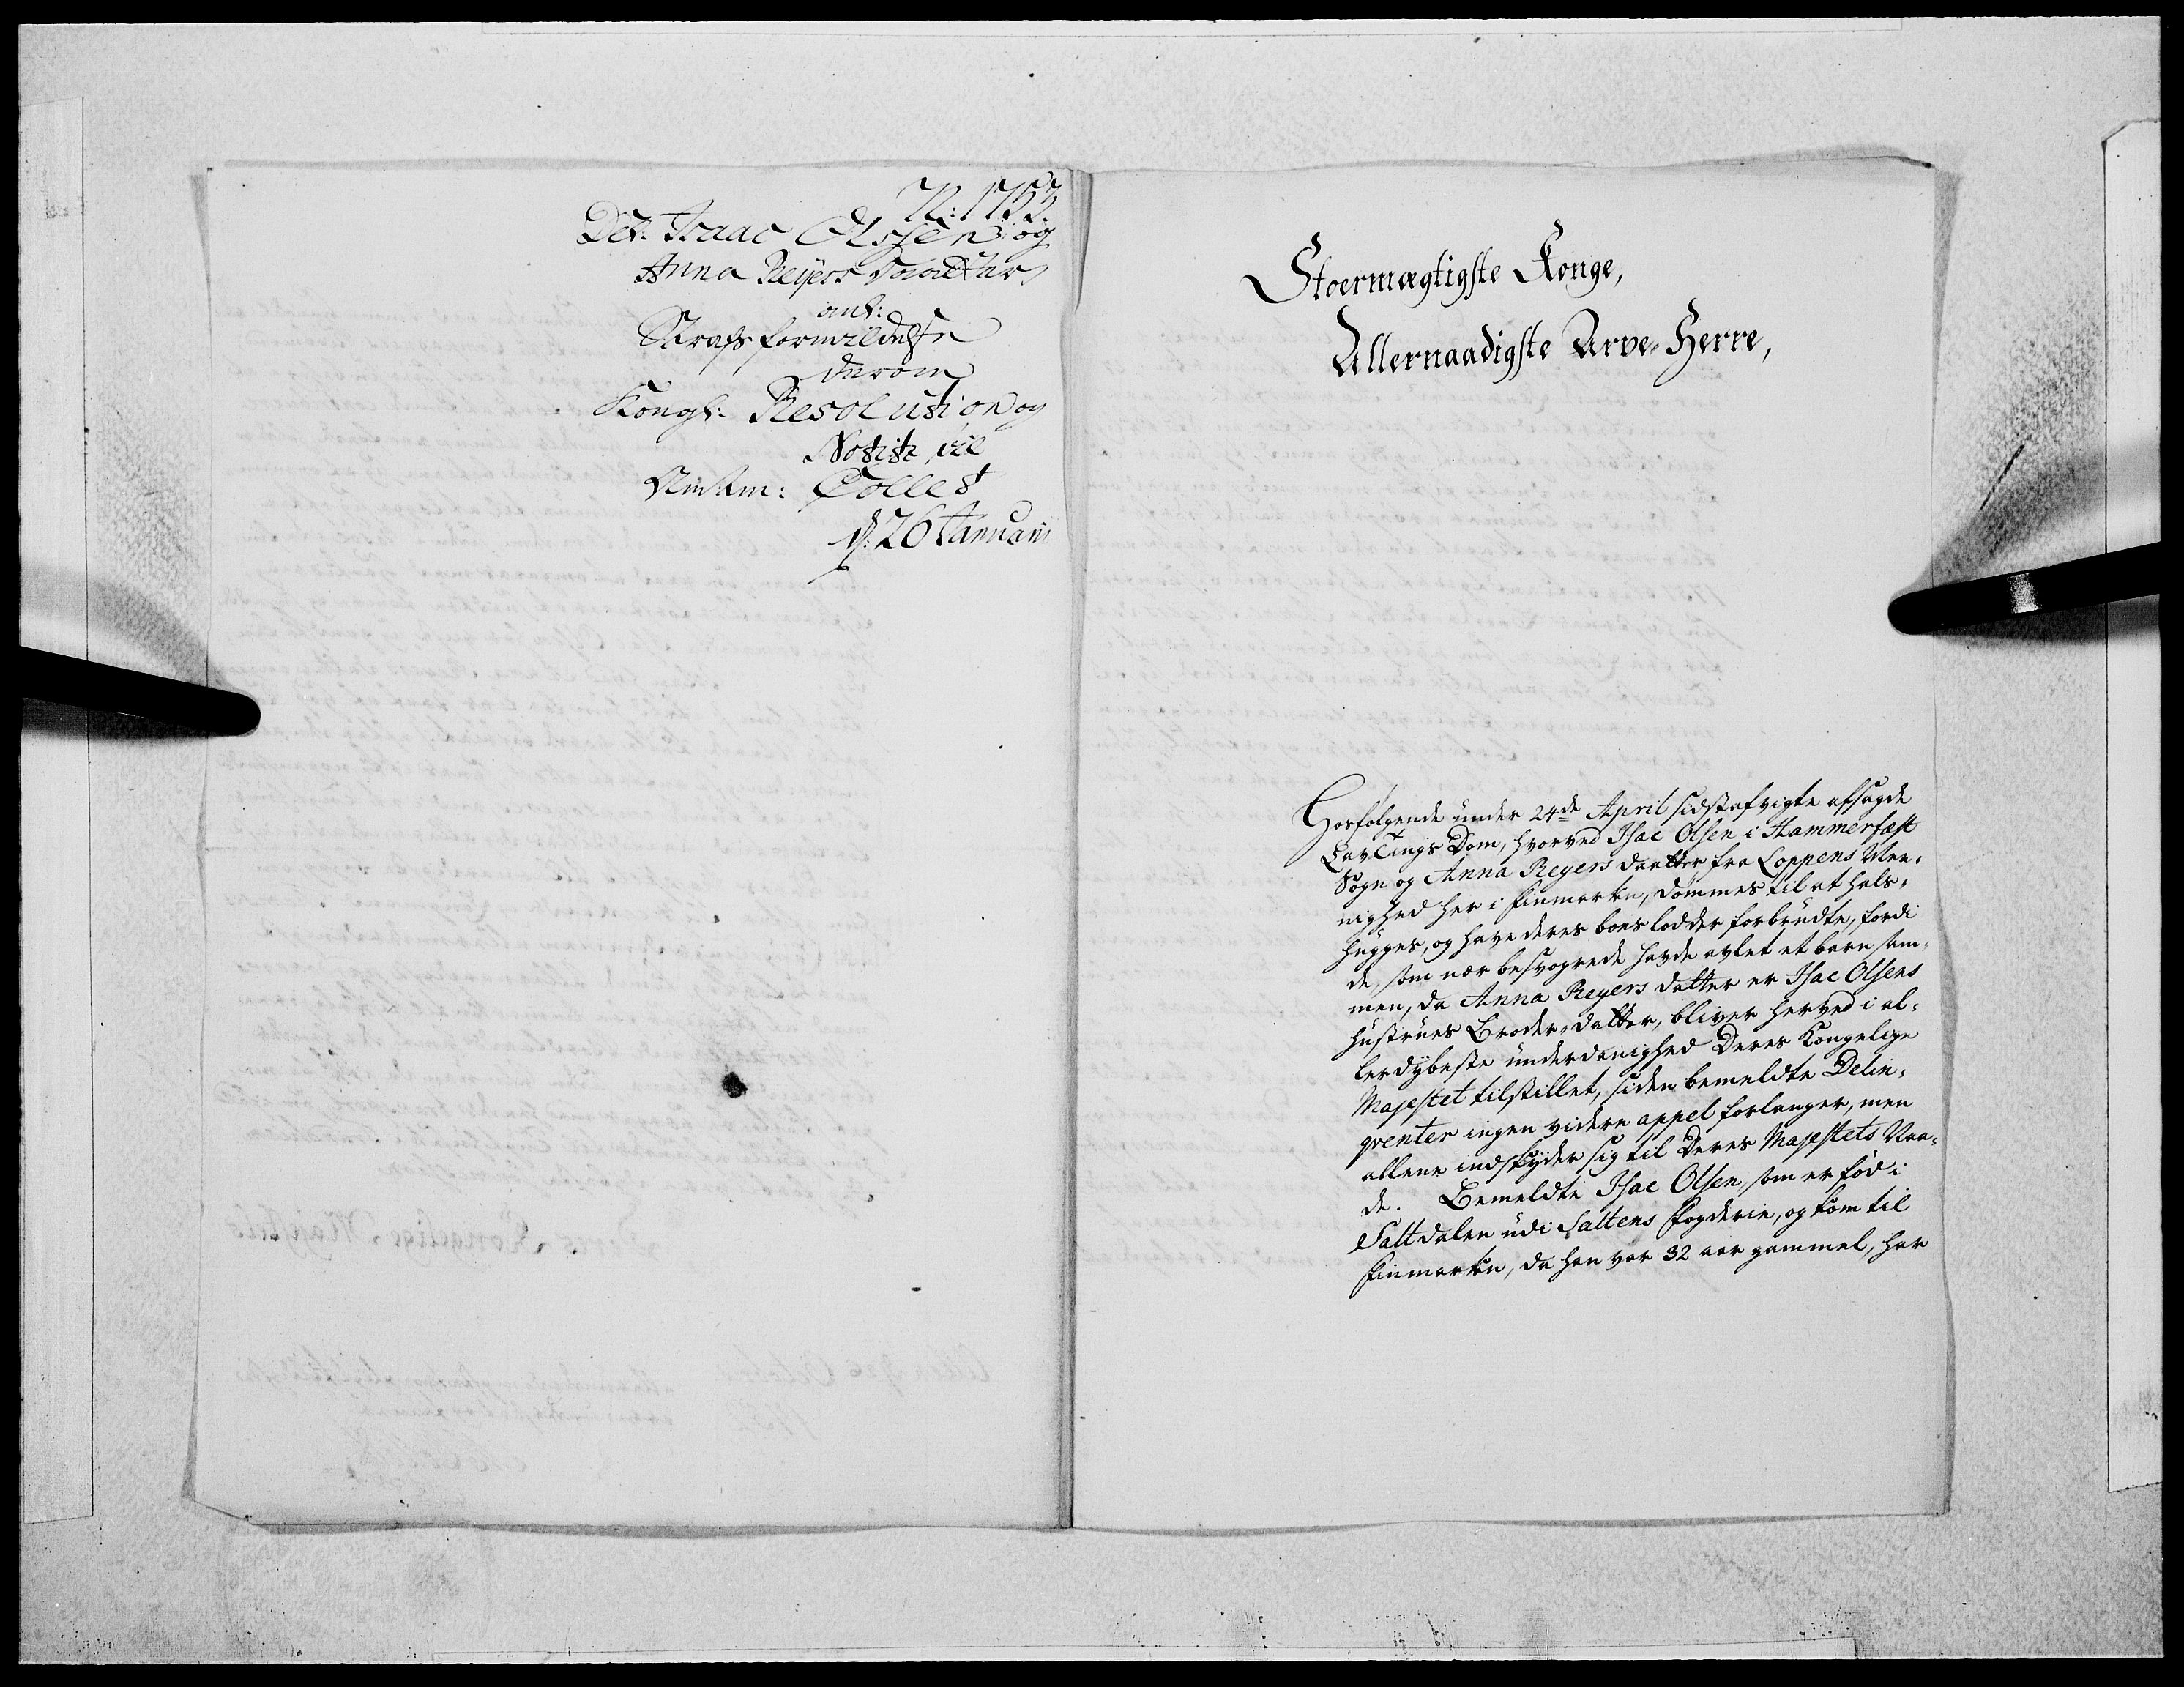 N: 1753.
Del: Isaac Olssen og
Anna Reijers Daatter
anl:
Straffs formildelse
derom
Kongl: Resolution og
Notitz til
Amtm: Collet
d: 26 Januarii
Stoermægtigste Konge,
Allernaadigste Arve-Herre,
Hosfølgende under 24de April sidstafvigte afsagde
LavTings Dom, hvorved Isac Olsen i Hammerfæst
Sogn og Anna Regers daatter fra Loppens Mee-
nighed her i Finmarken, dømmes til at hals-
hugges, og have deres boeslodder forbrudte, fordi
de, som nær besvogrede havde avlet et barn sam-
men, da Anna Regers datter er Isac Olsens
hustrues Broder-datter, bliver herved i al-
lerdybeste underdanighed Deres Kongelige
Majestet tilstillet, siden bemeldte Delin-
qventer ingen videre appel forlanger, men
allene indskyder sig til Deres Majestets Naa-
de. Bemeldte Isac Olsen, som er fød i
Saltdalen udi Saltens fogderie, og kom til
Finmarken, da han var 32 aar gammel, har